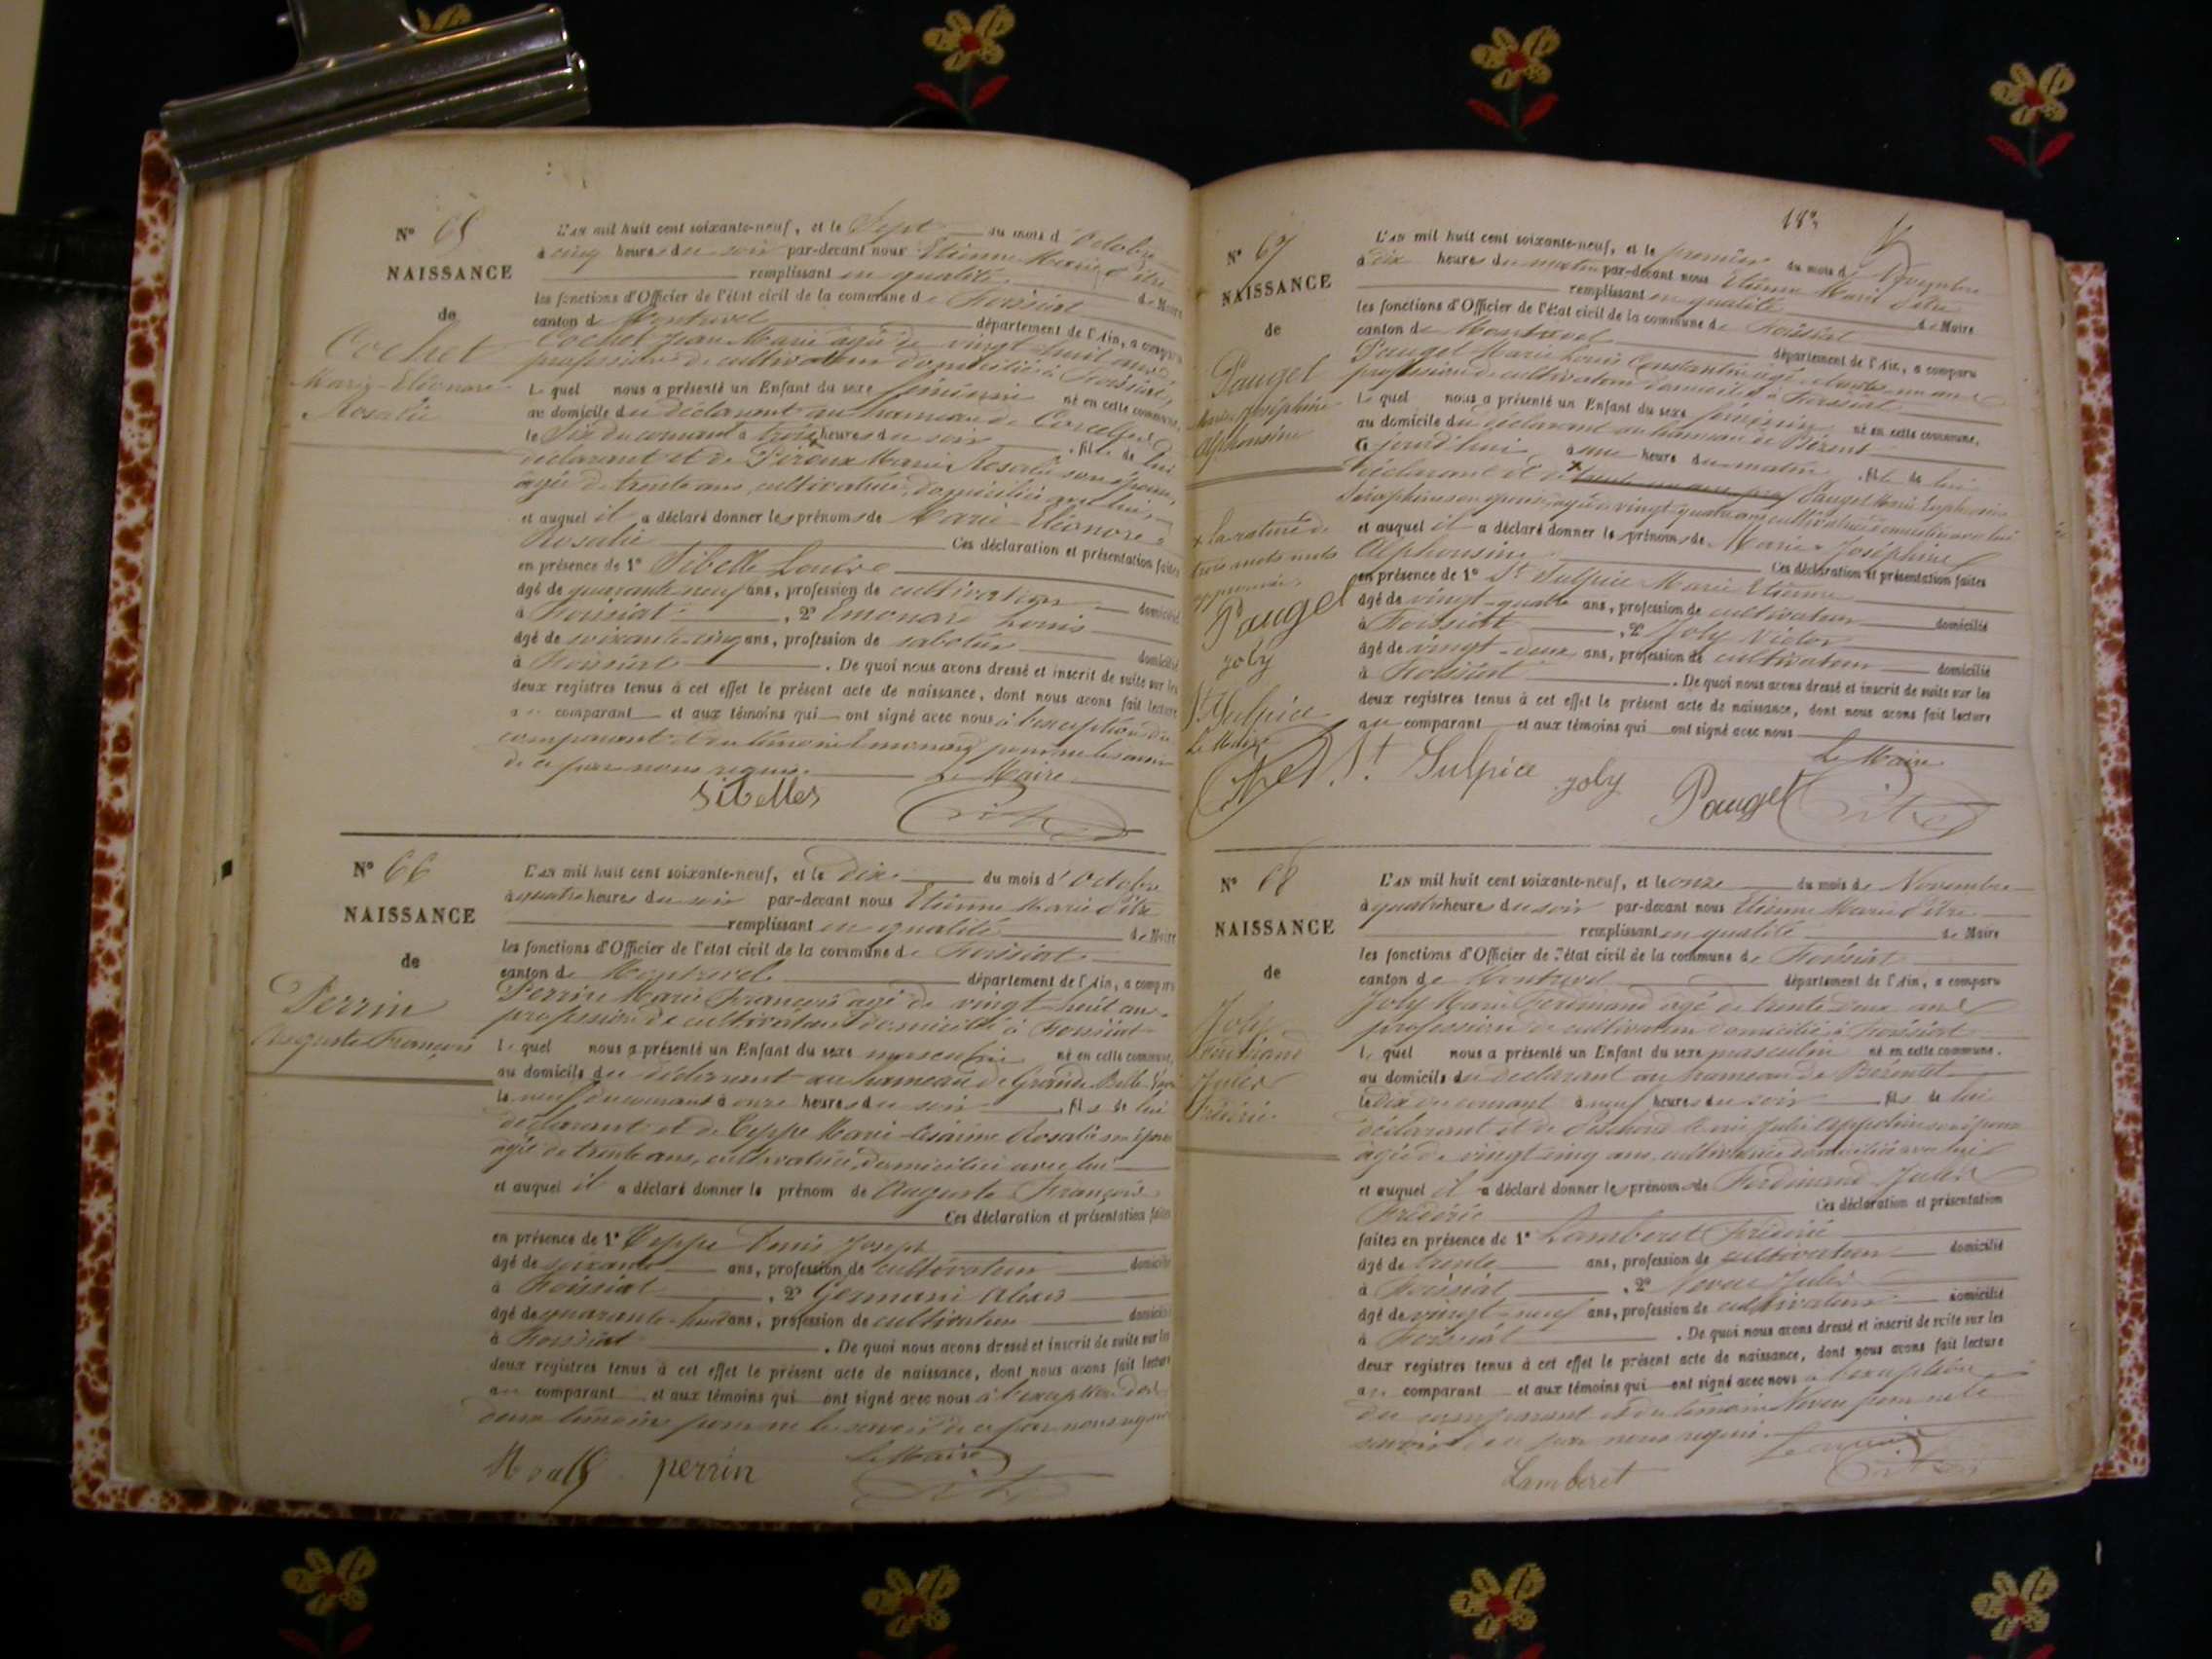 N° 65
NAISSANCE
de
Cochet
Marie-Eléonore
Rosalie
L'an mil huit cent soixante-neuf, et le Sept du mois d'Octobre
à cinq heures du soir par-devant nous Etienne Marie
remplissant en qualité de Maire
les fonctions d'Officier de l'état civil de la commune de Foissiat
canton de Montrevel département de l'Ain, a comparu
Cochet Jean Marie âgé de vingt huit ans
profession de cultivateur domicilié à Foissiat
Lequel nous a présenté un Enfant du sexe féminin né en cette commune,
au domicile du déclarant au hameau de
le Six du courant à trois heures du soir, fille de lui
déclarant et de Péroux Marie Rosalie son épouse,
âgée de trente ans, cultivatrice, domiciliée avec lui
et auquel il a déclaré donner les prénoms de Marie-Eléonore
Rosalie Ces déclaration et présentation faites
en présence de 1° Sibelle Louis
âgé de quarante neuf ans, profession de cultivateur domicilié
à Foissiat, 2° Emonard Louis
âgé de soixante-cinq ans, profession de sabotier domicilié
à Foissiat. De quoi nous avons dressé et inscrit de suite sur les
deux registres tenus à cet effet le présent acte de naissance, dont nous avons fait lecture
au comparant et aux témoins qui ont signé avec nous à l'exception du
comparant et du témoin Emonard pour ne le savoir
de ce par nous requis. Le Maire
Sibelles
N° 66
NAISSANCE
de
Perrin
Auguste François
L'an mil huit cent soixante-neuf, et le Dix du mois d'Octobre
à quatre heures du soir par-devant nous Etienne Marie
remplissant en qualité de Maire
les fonctions d'Officier de l'état civil de la commune de Foissiat
canton de Montrevel département de l'Ain, a comparu
Perrin Marie François âgé de vingt-huit ans
profession de cultivateur domicilié à Foissiat
Lequel nous a présenté un Enfant du sexe masculin né en cette commune,
au domicile du déclarant au hameau de Grande
le neuf du courant à onze heures du soir, fils de lui
déclarant et de Teppe Marie Rosalie son épouse
âgée de trente ans, cultivatrice, domiciliée avec lui
et auquel il a déclaré donner le prénom de Auguste François
Ces déclaration et présentation faites
en présence de 1° Teppe Denis Joseph
âgé de soixante ans, profession de cultivateur domicilié
à Foissiat, 2° Germani Alexis
âgé de quarante-huit ans, profession de cultivateur domicilié
à Foissiat. De quoi nous avons dressé et inscrit de suite sur les
deux registres tenus à cet effet le présent acte de naissance, dont nous avons fait lecture
au comparant et aux témoins qui ont signé avec nous à l'exception des
deux témoins pour ne le savoir de ce par nous requis
perrin Le Maire
N° 67
NAISSANCE
de
Pauget
Marie Joséphine
Alphonsine
L'an mil huit cent soixante-neuf, et le premier du mois de Novembre
à dix heures du matin par-devant nous Etienne Marie
remplissant en qualité de Maire
les fonctions d'Officier de l'état civil de la commune de Foissiat
canton de Montrevel département de l'Ain, a comparu
Pauget Marie Louis Constantin âgé de trente un ans
profession de cultivateur domicilié à Foissiat
Lequel nous a présenté un Enfant du sexe féminin né en cette commune,
au domicile du déclarant au hameau de
Ce jourd'hui à une heure du matin, fille de lui
déclarant et de Pauget Marie Euphrosine
Séraphine son épouse, âgée de vingt-quatre ans cultivatrice domiciliée avec lui
et auquel il a déclaré donner les prénoms de Marie Joséphine
Alphonsine Ces déclaration et présentation faites
en présence de 1° St Sulpice Marie Etienne
âgé de vingt-quatre ans, profession de cultivateur domicilié
à Foissiat, 2° Joly Victor
âgé de vingt-deux ans, profession de cultivateur domicilié
à Foissiat. De quoi nous avons dressé et inscrit de suite sur les
deux registres tenus à cet effet le présent acte de naissance, dont nous avons fait lecture
au comparant et aux témoins qui ont signé avec nous
Le Maire
x la rature de
trois mots nuls
approuvée
Pauget
joly
St Sulpice
Le Maire
St Sulpice joly Pauget
N° 68
NAISSANCE
de
Joly
Ferdinand
Jules
Frédéric
L'an mil huit cent soixante-neuf, et le onze du mois de Novembre
à quatre heures du soir par-devant nous Etienne Marie
remplissant en qualité de Maire
les fonctions d'Officier de l'état civil de la commune de Foissiat
canton de Montrevel département de l'Ain, a comparu
Joly Marie Ferdinand âgé de trente deux ans
profession de cultivateur domicilié à Foissiat
Lequel nous a présenté un Enfant du sexe masculin né en cette commune.
au domicile du déclarant au hameau de
le Dix du courant à neuf heures du soir, fils de lui
déclarant et de Marie Julie son épouse
âgée de vingt cinq ans, cultivatrice domiciliée avec lui
et auquel il a déclaré donner les prénoms de Ferdinand Jules
Frédéric Ces déclaration et présentation
faites en présence de 1° Lamberet Frédéric
âgé de trente ans, profession de cultivateur domicilié
à Foissiat, 2° Neveu Jules
âgé de vingt-neuf ans, profession de cultivateur domicilié
à Foissiat. De quoi nous avons dressé et inscrit de suite sur les
deux registres tenus à cet effet le présent acte de naissance, dont nous avons fait lecture
au comparant et aux témoins qui ont signé avec nous à l'exception
du comparant et du témoin Neveu pour ne le
savoir de ce par nous requis. Le Maire
Lamberet